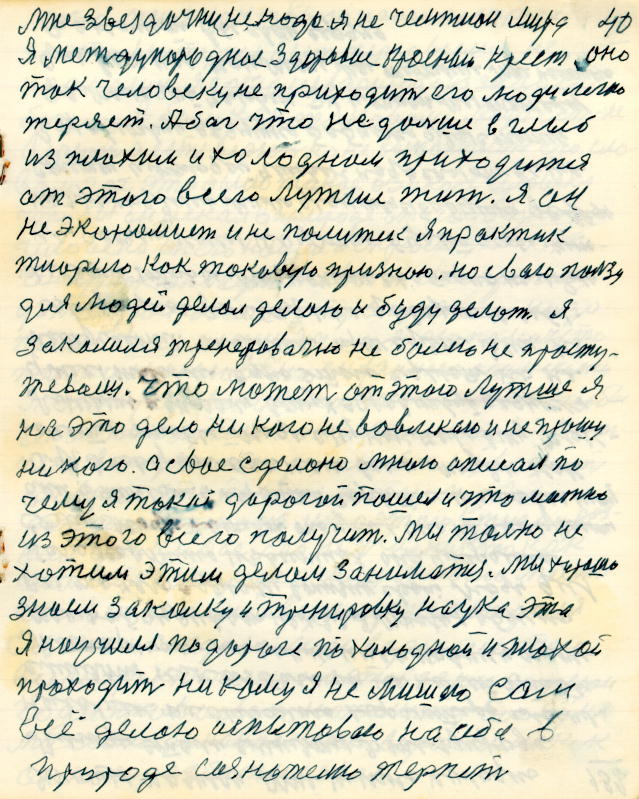 Мне звездочки не надо я не чемпион мира 40
Я международное здоровье красный крест оно
так человеку не приходит его люди легко
теряет. А бог что не дольше в
из плохим и холодном приходится
от этого всего лутшие жит. Я он
не экономист и не политек я практик
творило как таковую признаю. но сваго ползу
для людей делал делаю и буду делат. Я
закалился тренеровачно не болею не просту-
жеваюи. что может от этого лутше я
на это дело ни кого не вовлекаю и не прошу
никого. а свое сделоно мною описал по
чему я такой дорогой пошел и что можно
из этого всего получит. Мы толко не
хотим этим делом заниматся. Мы хорошо
знаем закалку и тренировку наука эта
Я научился по дороге по холодной и плохой
проходит ни кому я не мишаю сам
всё делаю испытоваю на себе в
природе сознателно терпет